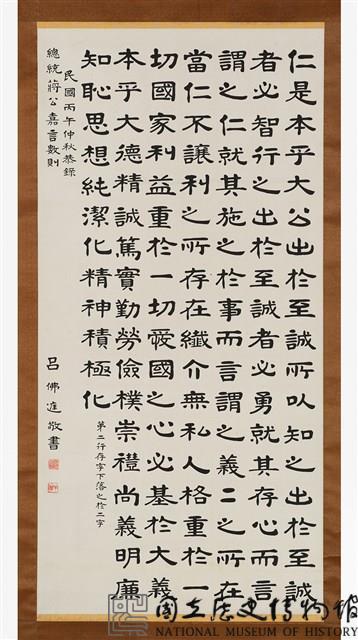 仁是本乎大公出於至誠所以知之出於至誠
者必智行之出於至誠者必勇就其存心而言
謂之仁就其施之於事而言謂之義二之所在
當仁不讓利之所存在纖介無私人格重於一
切國家利益重於一切愛國之心必基於大義
本乎大德精誠篤實勤勞儉樸崇禮尚義明廉
知恥思想純潔化精神積極化
第二行存字下落之於二字
民國丙午仲秋恭錄
總統蔣公嘉言數則
呂佛庭敬書
國立歷史博物館
NATIONAL MUSEUM OF HISTORY